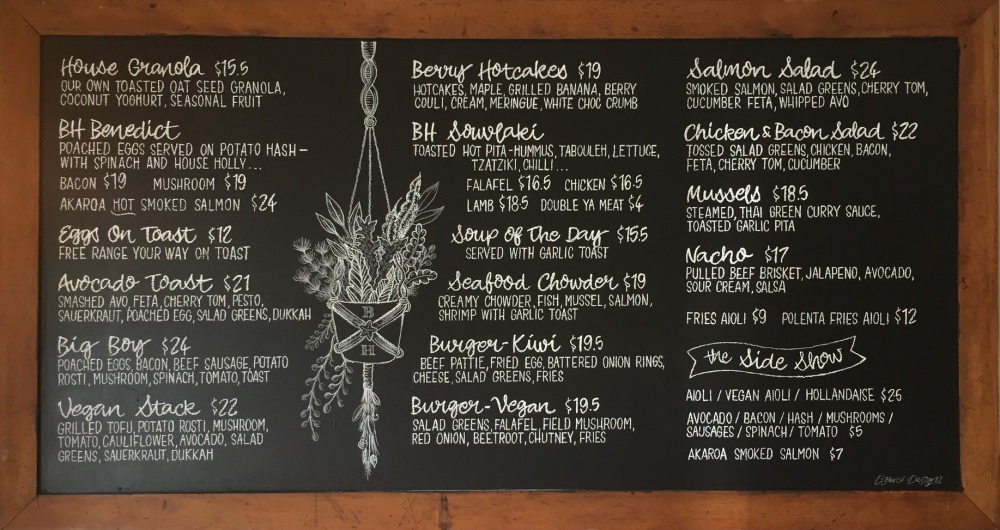 House Granola $15.5
OUR OWN TOASTED OAT SEED GRANOLA,
COCONUT YOGHURT, SEASONAL FRUIT
BH Benedict
POACHED EGGS SERVED ON POTATO HASH-
WITH SPINACH AND HOUSE HOLLY...
BACON $19 MUSHROOM $19
AKAROA HOT SMOKED SALMON $24
Eggs On Toast $12
FREE RANGE YOUR WAY ON TOAST
Avocado Toast $21
SMASHED AVO, FETA, CHERRY TOM, PESTO,
SAUERKRAUT, POACHED EGG, SALAD GREENS, DUKKAH
Big Boy $24
POACHED EGGS, BACON, BEEF SAUSAGE, POTATO
ROSTI, MUSHROOM, SPINACH, TOMATO, TOAST
Vegan Stack $22
GRILLED TOFU, POTATO ROSTI, MUSHROOM,
TOMATO, CAULIFLOWER, AVOCADO, SALAD
GREENS, SAUERKRAUT, DUKKAH
B
H
Berry Hotcakes $19
HOTCAKES, MAPLE, GRILLED BANANA, BERRY
COULI, CREAM, MERINGUE, WHITE CHOC CRUMB
BH Souvlaki
TOASTED HOT PITA-HUMMUS, TABOULEH, LETTUCE,
TZATZIKI, CHILLI...
FALAFEL $16.5 CHICKEN $16.5
LAMB $18.5 DOUBLE YA MEAT $4
Soup Of The Day $15.5
SERVED WITH GARLIC TOAST
Seafood Chowder $19
CREAMY CHOWDER, FISH, MUSSEL, SALMON,
SHRIMP WITH GARLIC TOAST
Burger-Kiwi $19.5
BEEF PATTIE, FRIED EGG, BATTERED ONION RINGS,
CHEESE, SALAD GREENS, FRIES
Burger-Vegan $19.5
SALAD GREENS, FALAFEL, FIELD MUSHROOM,
RED ONION, BEETROOT, CHUTNEY, FRIES
Salmon Salad $24
SMOKED SALMON, SALAD GREENS, CHERRY TOM,
CUCUMBER FETA, WHIPPED AVO
Chicken & Bacon Salad $22
TOSSED SALAD GREENS, CHICKEN, BACON,
FETA, CHERRY TOM, CUCUMBER
Mussels $18.5
STEAMED, THAI GREEN CURRY SAUCE,
TOASTED GARLIC PITA
Nacho $17
PULLED BEEF BRISKET, JALAPENO, AVOCADO,
SOUR CREAM, SALSA
FRIES AIOLI $9 POLENTA FRIES AIOLI $12
the Side Show
AIOLI / VEGAN AIOLI / HOLLANDAISE $2.5
AVOCADO / BACON / HASH / MUSHROOMS /
SAUSAGES / SPINACH / TOMATO $5
AKAROA SMOKED SALMON $7